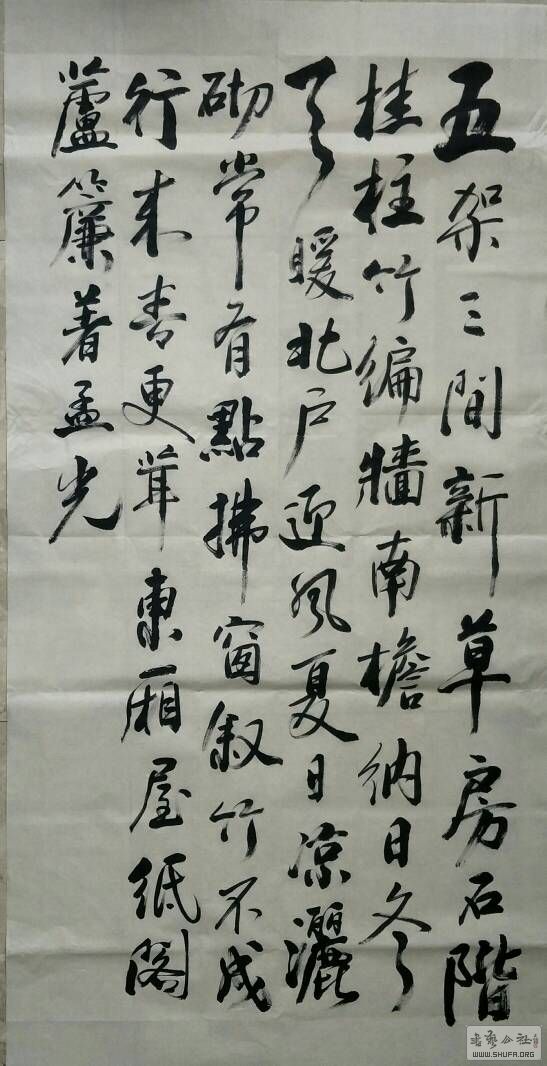 五架三間新草房石階
桂柱竹編牆南檐納日冬
天暖北户迎風夏日凉灑
砌常有點拂窗斜竹不成
行来春更葺東廂屋紙閣
蘆簾着孟光
書藝公社
WWW.SHUFA.ORG